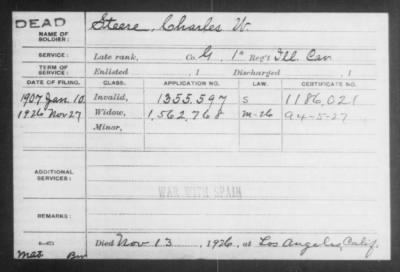 DEAD
NAME OF SOLDIER:
Steere, Charles W.
SERVICE:
Late rank, Co. G, 1st Reg't Ill. Cav.
TERM OF SERVICE:
Enlisted , 1 Discharged , 1
DATE OF FILING. CLASS. APPLICATION NO. LAW. CERTIFICATE NO.
1907 Jan. 10. Invalid, 1355.597 S 1186,021
1926 Nov 27 Widow, 1,562,768 M-26 A4-5-27
Minor,
ADDITIONAL SERVICES:
WAR WITH SPAIN
REMARKS:
Died Nov 13, 1926, at Los Angeles, Calif.